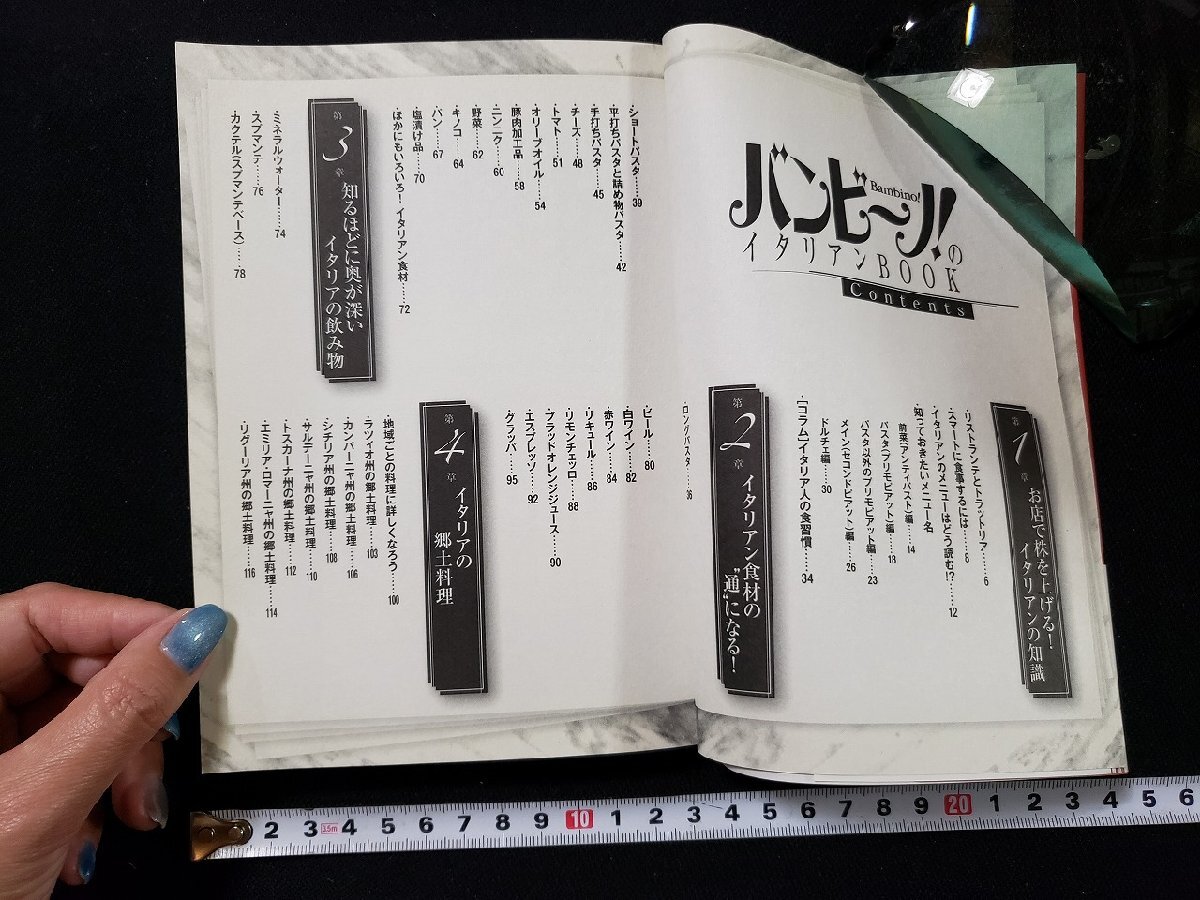 バンビ〜ノ!の
Bambino!
イタリアンBOOK
Contents
第1章 お店で株を上げる!
イタリアンの知識
・リストランテとトラットリア……6
・スマートに食事するには……8
・イタリアンのメニューはどう読む!?……12
・知っておきたいメニュー名
前菜(アンティパスト)編……14
パスタ(プリモピアット)編……18
パスタ以外のプリモピアット編……23
メイン(セコンドピアット)編……26
ドルチェ編……30
・[コラム]イタリア人の食習慣……34
第2章 イタリアン食材の
“通”になる!
・ロングパスタ……36
・ショートパスタ……39
・平打ちパスタと詰め物パスタ……42
・手打ちパスタ……45
・チーズ……48
・トマト……51
・オリーブオイル……54
・豚肉加工品……58
・ニンニク……60
・野菜……62
・キノコ……64
・パン……67
・塩漬け品……70
・ほかにもいろいろ! イタリアン食材……72
第3章 知るほどに奥が深い
イタリアの飲み物
・ミネラルウォーター……74
・スプマンテ……76
・カクテル(スプマンテベース)……78
・ビール……80
・白ワイン……82
・赤ワイン……84
・リキュール……86
・リモンチェッロ……88
・ブラッドオレンジジュース……90
・エスプレッソ……92
・グラッパ……95
第4章 イタリアの
郷土料理
・地域ごとの料理に詳しくなろう……100
・ラツィオ州の郷土料理……103
・カンパーニャ州の郷土料理……106
・シチリア州の郷土料理……108
・サルデーニャ州の郷土料理……110
・トスカーナ州の郷土料理……112
・エミリア・ロマーニャ州の郷土料理……114
・リグーリア州の郷土料理……116
2 3 3.5m 4 5 6 7 8 9 10 1 2 3 4 5 6 7 8 9 20 1 2 3 4 5 6